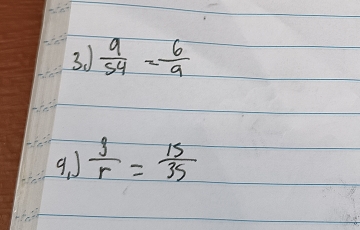 3.) a/54 = 6/a
4.) 3/r = 15/35